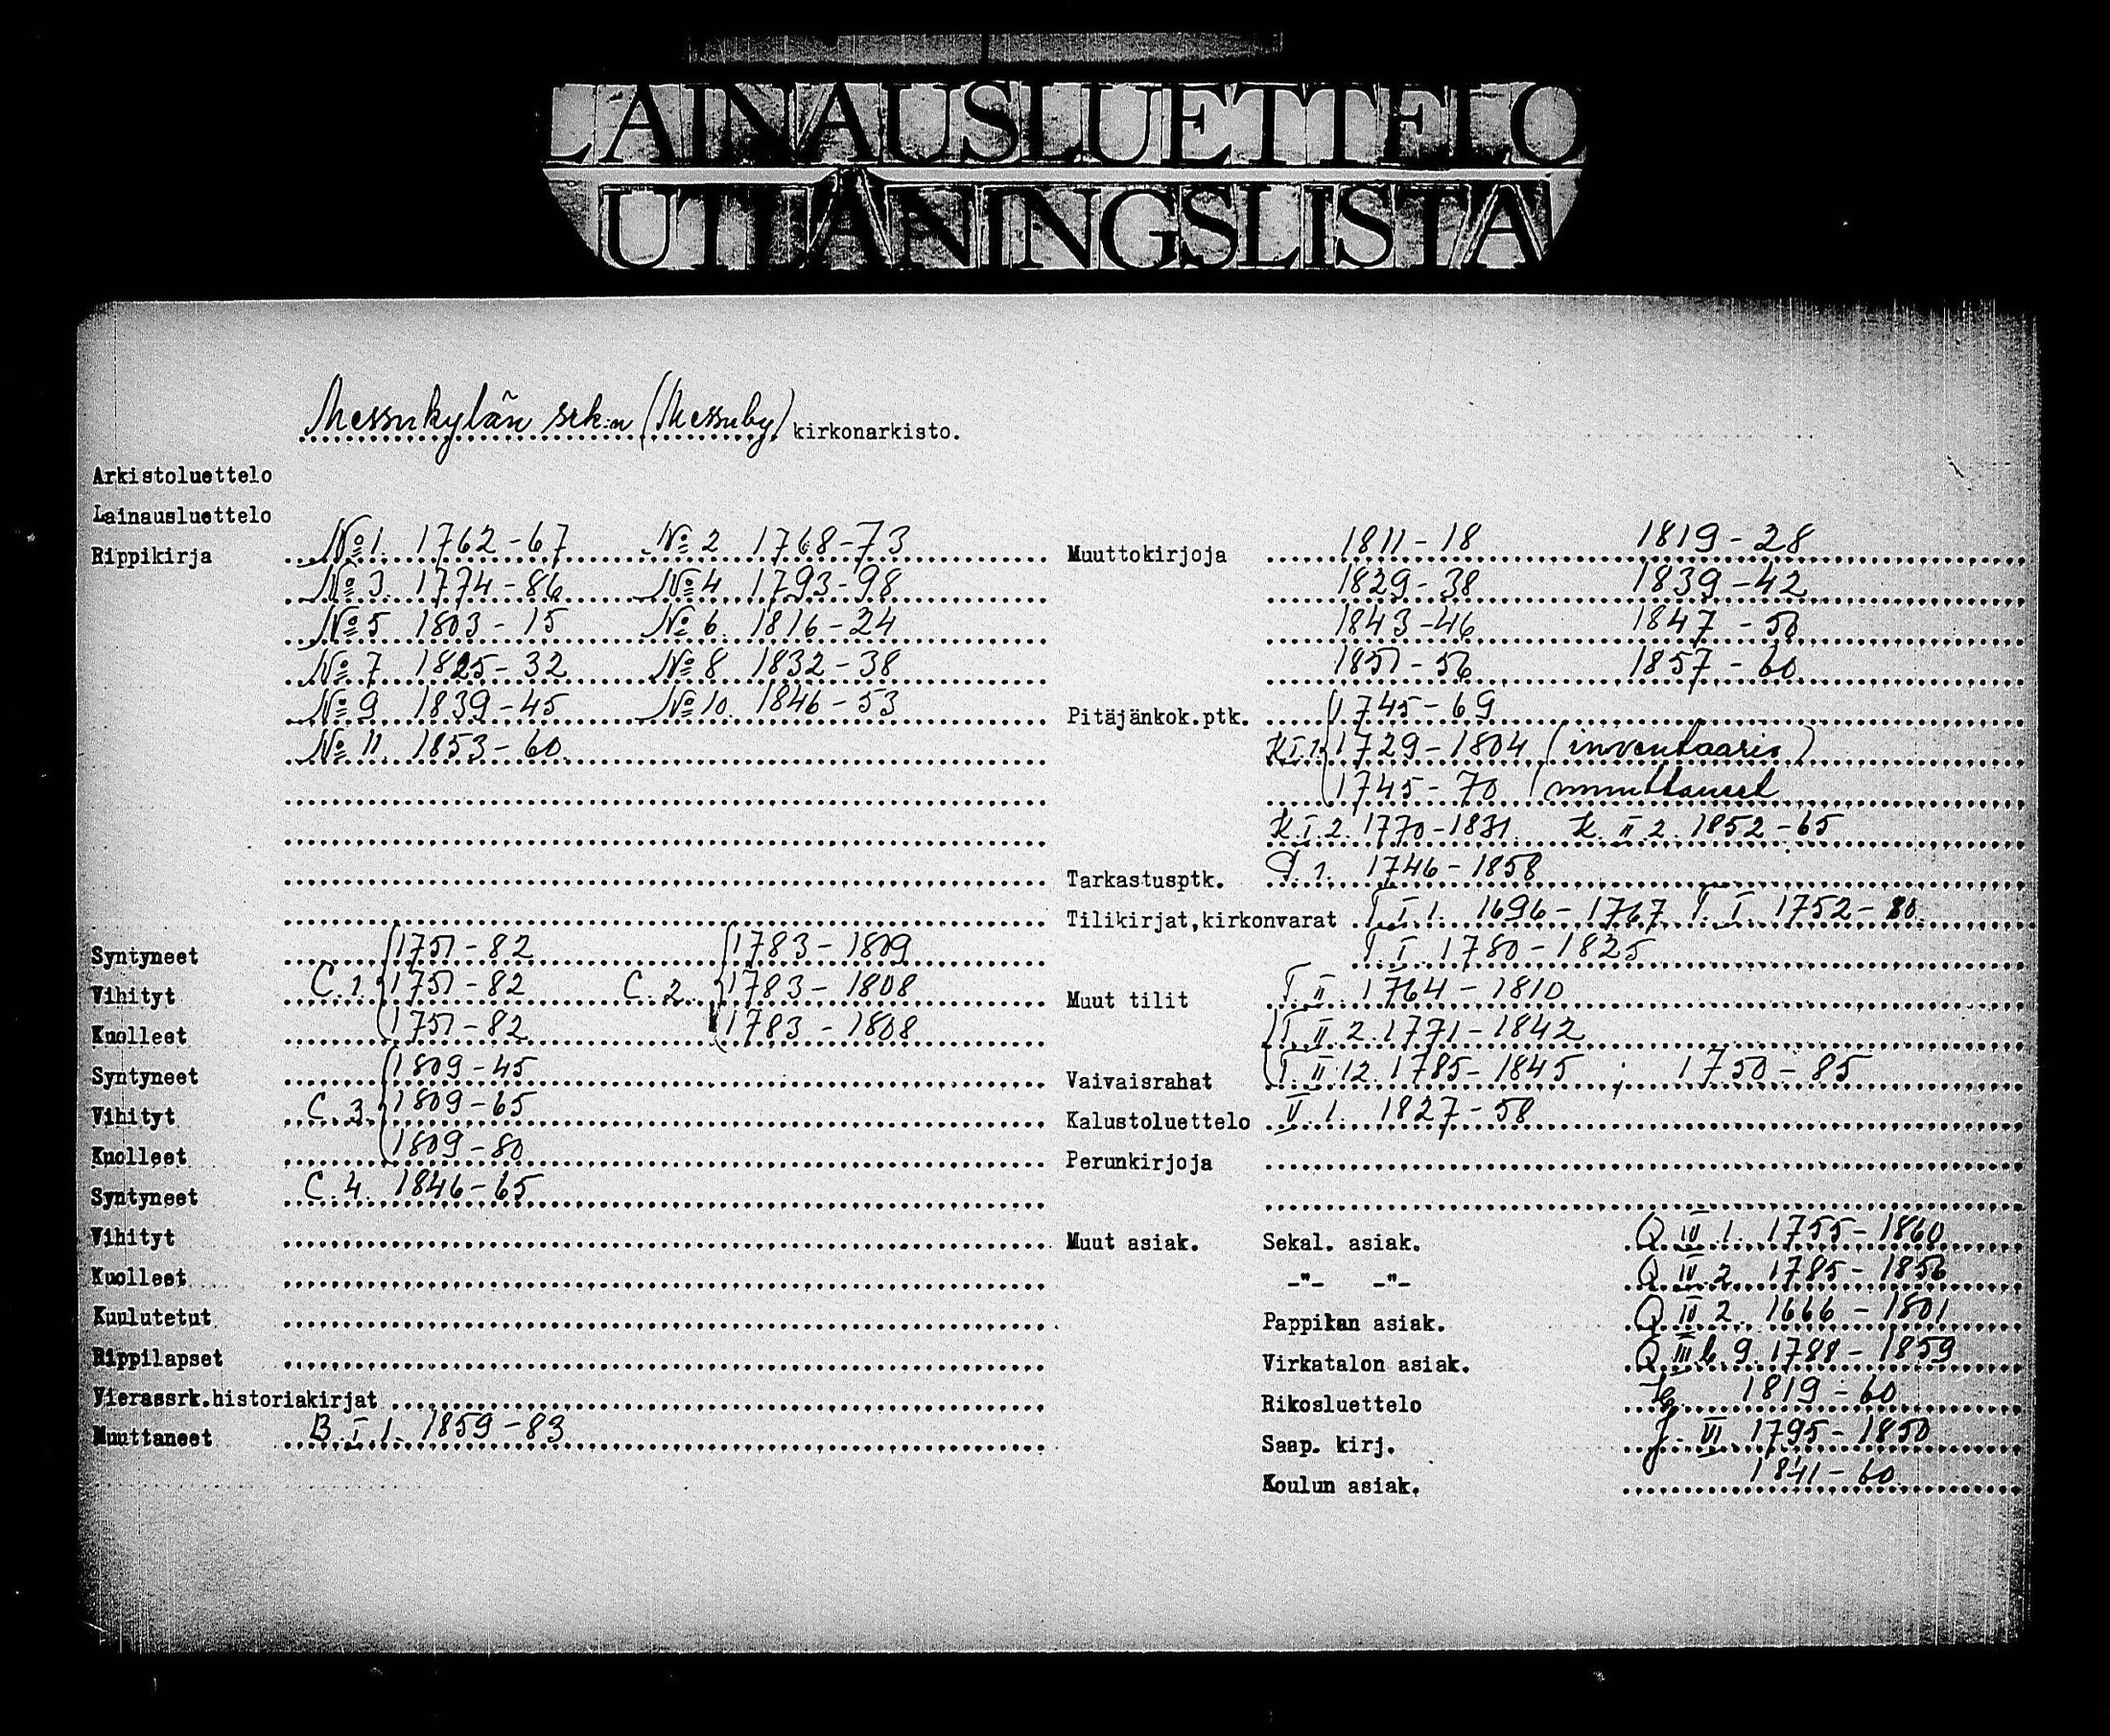 LAINAUSLUETTELO
UTLÅNINGSLISTA
Messukylän srk:n (Messuby) kirkonarkisto.
Arkistoluettelo
Lainausluettelo
Rippikirja № 1. 1762-67 № 2 1768-73
№ 3. 1774-86 № 4 1793-98
№ 5 1803-15 № 6. 1816-24
№ 7 1825-32 № 8 1832-38
№ 9 1839-45 № 10. 1846-53
№ 11. 1853-60
Syntyneet 1751-82 1783-1809
Vihityt C.1. 1751-82 C.2. 1783-1808
Kuolleet 1751-82 1783-1808
Syntyneet 1809-45
Vihityt C.3. 1809-65
Kuolleet 1809-80
Syntyneet C.4. 1846-65
Vihityt
Kuolleet
Kuulutetut
Rippilapset
Vierassrk.historiakirjat
Muuttaneet B.I.1. 1859-83
Muuttokirjoja 1811-18 1819-28
1829-38 1839-42
1843-46 1847-50
1851-56 1857-60
Pitäjänkok.ptk. 1745-69
K.I.1. 1729-1804 (inventaario)
1745-70 (muuttaneet
K.I.2. 1770-1831. K.II 2. 1852-65
Tarkastusptk. 1. 1746-1858
Tilikirjat,kirkonvarat T.I.1. 1696-1767 T.I. 1752-80
T.I. 1780-1825
Muut tilit T.II. 1764-1810
T.II.2. 1771-1842
Vaivaisrahat T.II.12. 1785-1845 ; 1750-85
Kalustoluettelo V.1. 1827-58
Perunkirjoja
Muut asiak. Sekal. asiak. Q IV.1. 1755-1860
-"- -"- Q IV.2. 1785-1856
Pappilan asiak. Q II 2. 1666-1801
Virkatalon asiak. Q III b 9. 1788-1859
Rikosluettelo 1819-60
Saap. kirj. J. VI 1795-1850
Koulun asiak. 1841-60